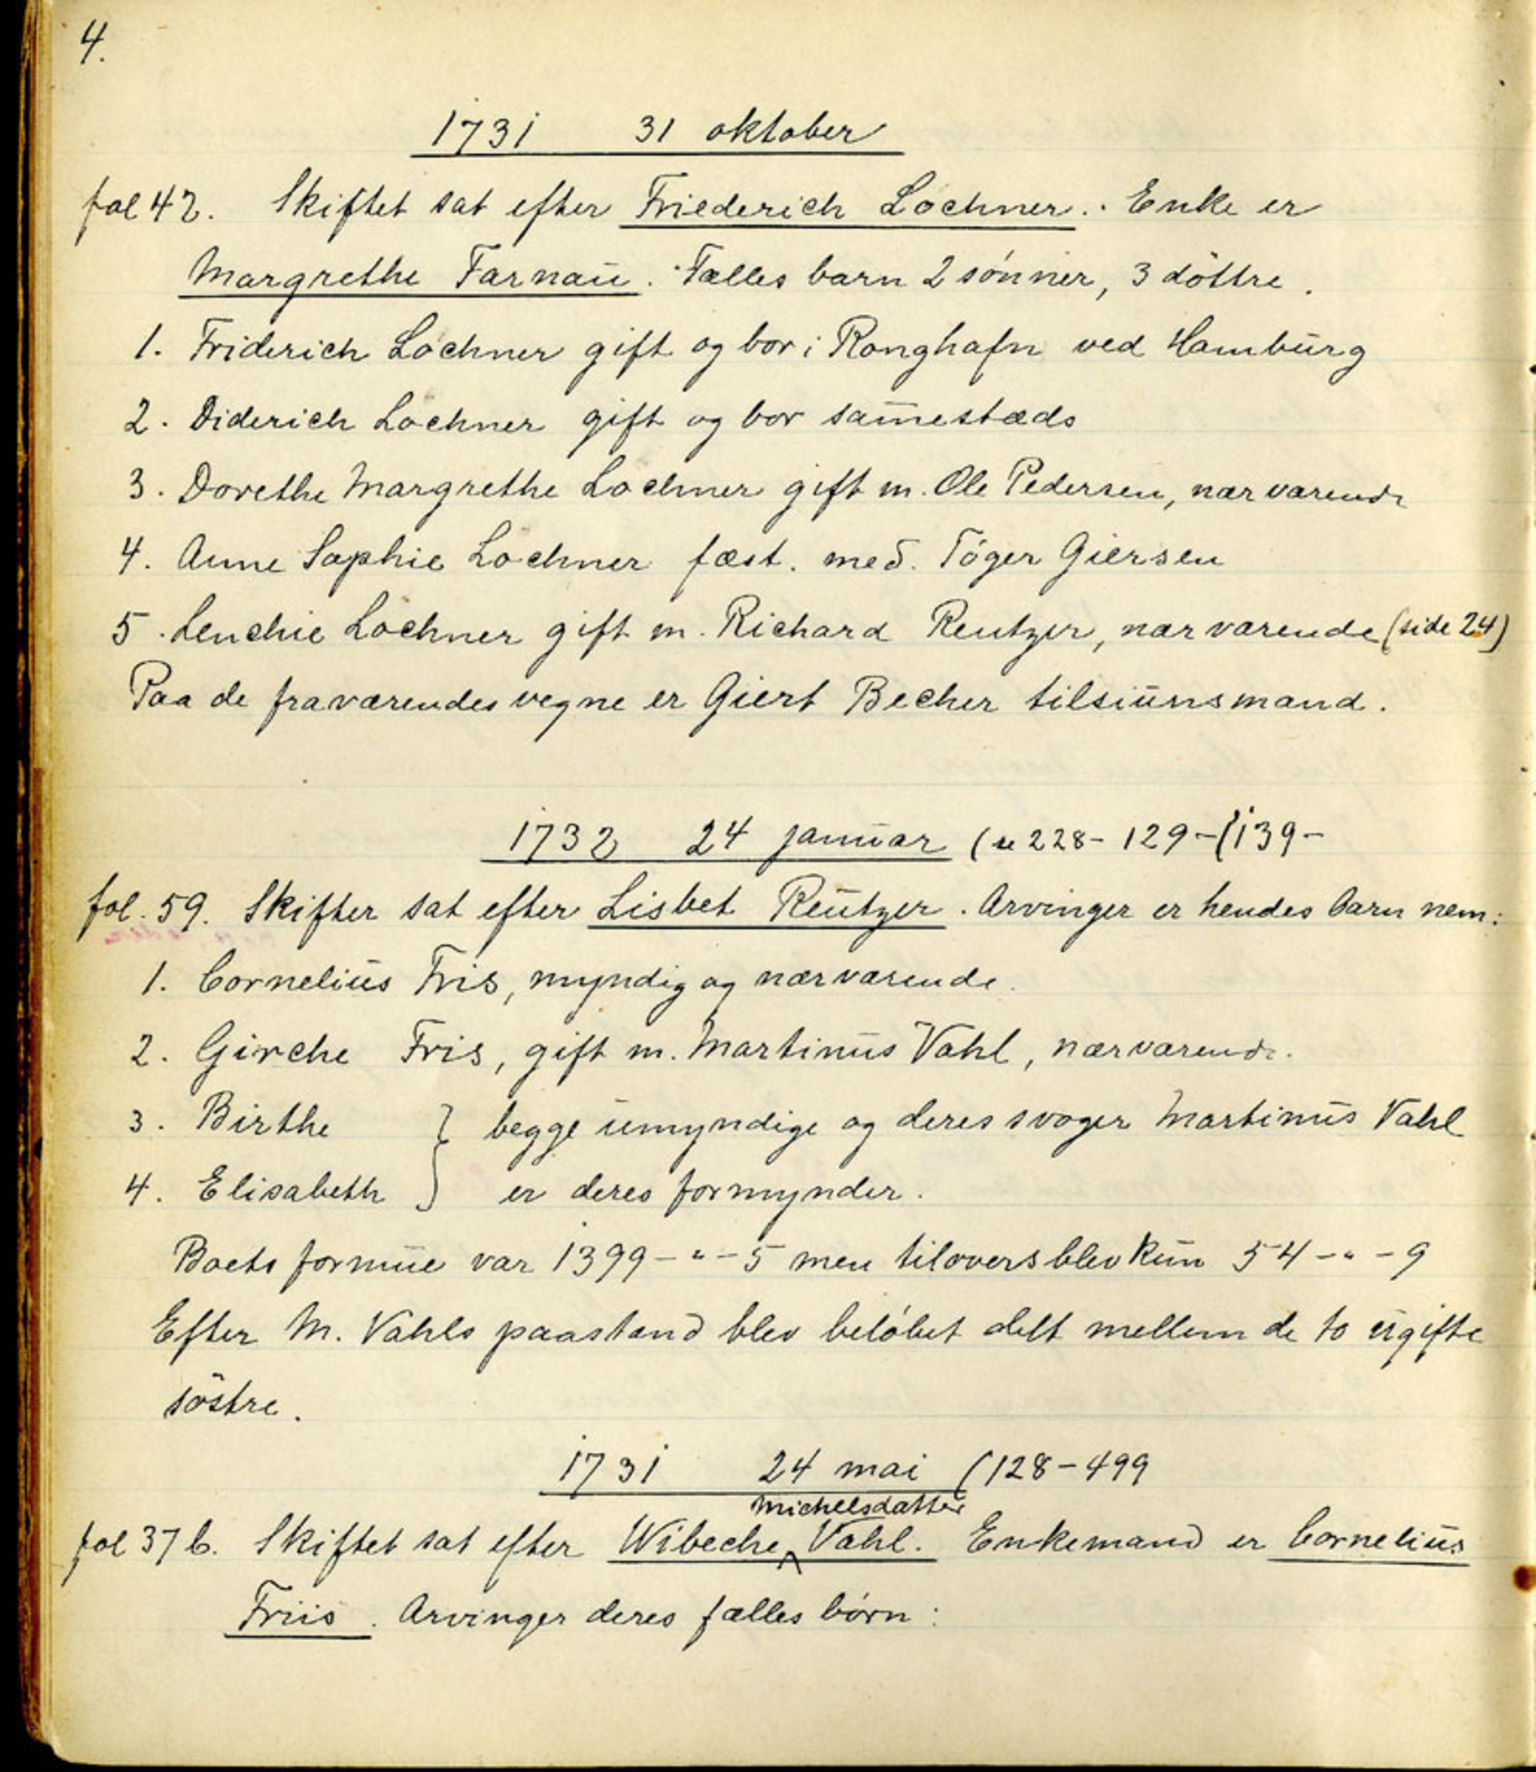 4.
1731 31 oktober
fol 42. Skiftet sat efter Friederich Lochner. Enke er
Margrethe Farnau. Fælles barn 2 sönner, 3 döttre.
1. Friderich Lochner gift og bor i Ronghafn ved Hamburg
2. Diderich Lochner gift og bor sam̄estæds
3. Dorethe Margrethe Lochner gift m. Ole Pedersen, nærværende
4. Anne Sophie Lochner fæst. med. Töger Giersen
5. Lenchie Lochner gift m. Richard Reutzer, nærværende (side 24)
Paa de fraværendes vegne er Giert Becher tilsiunsmand.
1732 24 januar ( 228- 129-(139-
fol. 59. Skifter sat efter Lisbet Reutzer. Arvinger er hendes barn nem:
1. Cornelius Fris, myndig og nærværende.
2. Girche Fris, gift m. Martinus Vahl, nærværende.
3. Birthe } begge umyndige og deres svoger Martinus Vahl
4. Elisabeth } er deres formynder.
Boets formue var 1399-"-5 men tiloversblev kun 54-"-9
Efter M. Vahls paastand blev belöbet delt mellem de to ugifte
söstre.
1731 24 mai (128-499
Michelsdatter
fol 37 b. Skiftet sat efter Wibeche ^ Vahl. Enkemand er Cornelius
Friis. Arvinger deres fælles börn: